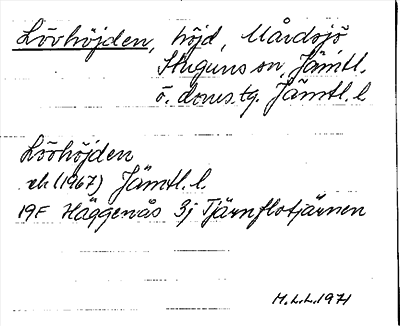 Lövhöjden, höjd, Mårdsjö
Stuguns sn, Jämtl.
ö. doms.tg. Jämtl. l.
Lövhöjden
ek (1967) Jämtl. l.
19F Häggenås 3j Tjärnflotjärnen
M.L.L. 1971